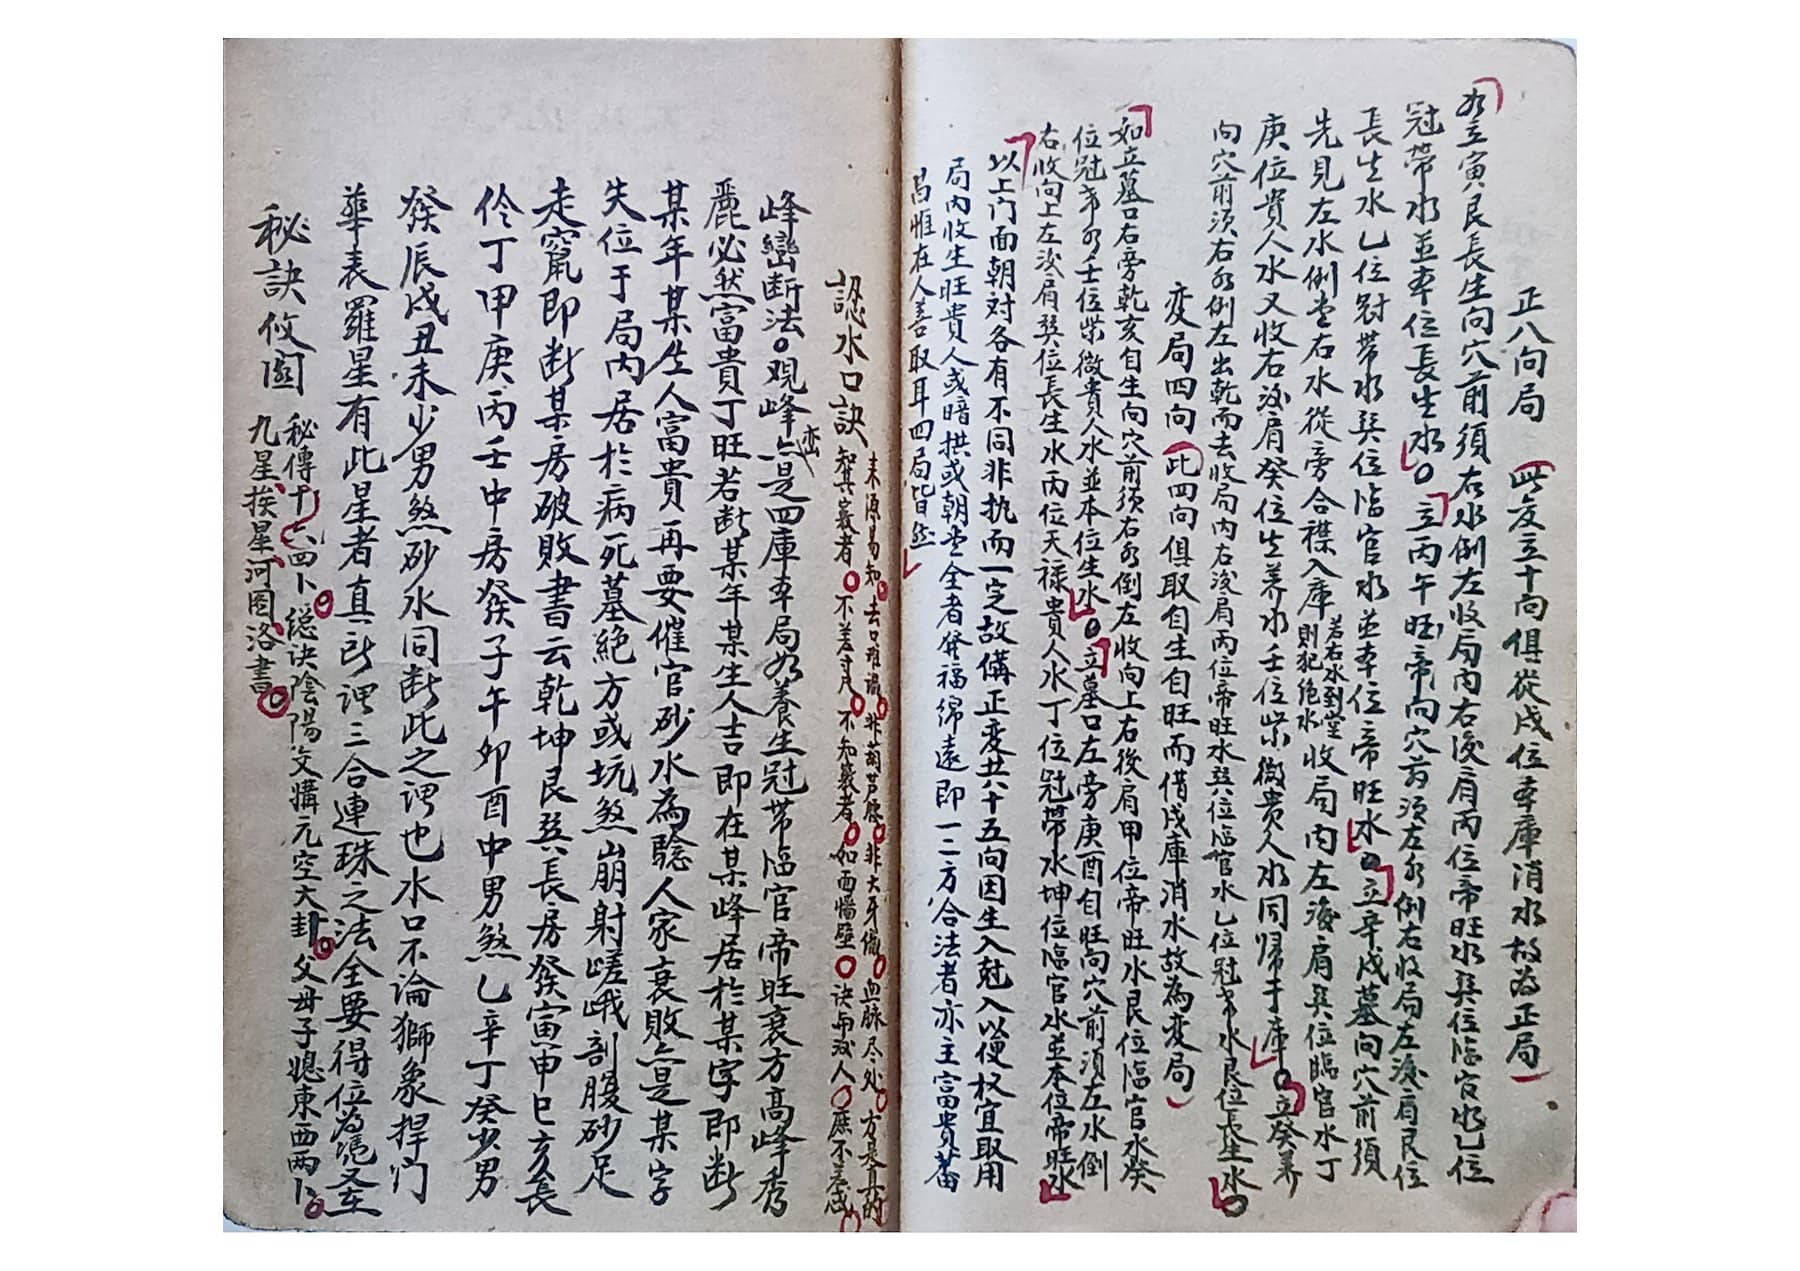 正八向局(此友立十向俱從戌位本庫消水故为正局)
如立寅艮長生向穴前須右水倒左收局內右後肩丙位帝旺水巽位臨官水乙位
冠带水並本位長生水○立丙午旺帝向穴前須左水倒右收局左後肩艮位
長生水乙位冠带水巽位臨官水並本位帝旺水○立辛戌墓向穴前須
先見左水倒堂右水從旁合襟入庫若右水到堂則犯絕水收局內左後肩巽位臨官水丁
庚位貴人水又收右後肩癸位生养水壬位紫微贵人水同帰于庫○立癸养
向穴前須右水倒左出乾而去收局內右後肩丙位帝旺水巽位臨官水乙位冠带水艮位長生水○
变局四向(此四向俱取自生自旺而借戌庫消水故為变局)
如立墓口右旁乾亥自生向穴前須右水倒左收向上右後肩甲位帝旺水艮位臨官水癸
位冠带水壬位紫微貴人水並本位生水○立墓口左旁庚酉自旺向穴前須左水倒
右收向上左後肩巽位長生水丙位天禄貴人水丁位冠帶水坤位臨官水並本位帝旺水
以上门面朝対各有不同非执而一定故備正变廿八十五向因生入尅入以便权宜取用
局內收生旺貴人或暗拱或朝堂全者發福绵遠即一二方合法者亦主富貴蕃
昌惟在人善取耳四局皆然
認水口訣
来源易知○去口难識○非葫芦腰○非大牙傲○血脉尽处○方是真的
智其窾者○不差寸尺○不知窾者○如面牆壁○诀与汝人○庶不差忒
峰巒断法○观峰巒亦是四庫本局如養生冠带临官帝旺衰方高峰秀
麗必然富貴丁旺若断某年某生人吉即在某峰居於某字即断
某年某生人富貴再要催官砂水為驗人家衰敗亦是某字
失位于局内居於病死墓絕方或坑煞崩射嵯峨剖腹砂足
走竄即断某房破敗書云乾坤艮巽長房發寅申巳亥長
伶丁甲庚丙壬中房發子午卯酉中男煞乙辛丁癸少男
發辰戌丑未少男煞砂水同断此之谓也水口不論獅象捍门
華表羅星有此星者真所谓三合連珠之法全要得位為憑又在
秘訣攸圖
秘傳十六四卜○總诀陰陽交媾元空大卦○父母子媳東西兩卜○
九星挨星河图洛書○